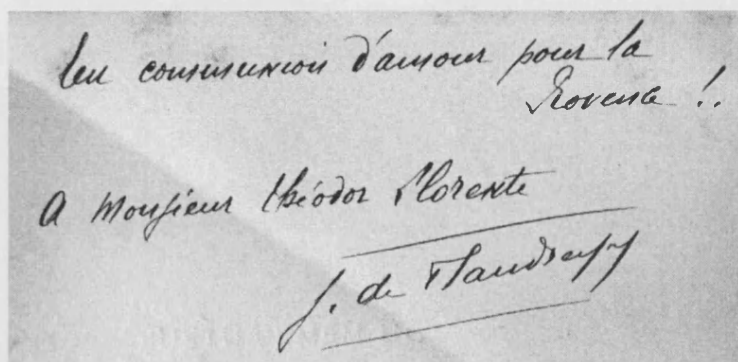 En communion d'amour pour la
Provence !!
A Monsieur théodor Llorente
J. de Flandreysy